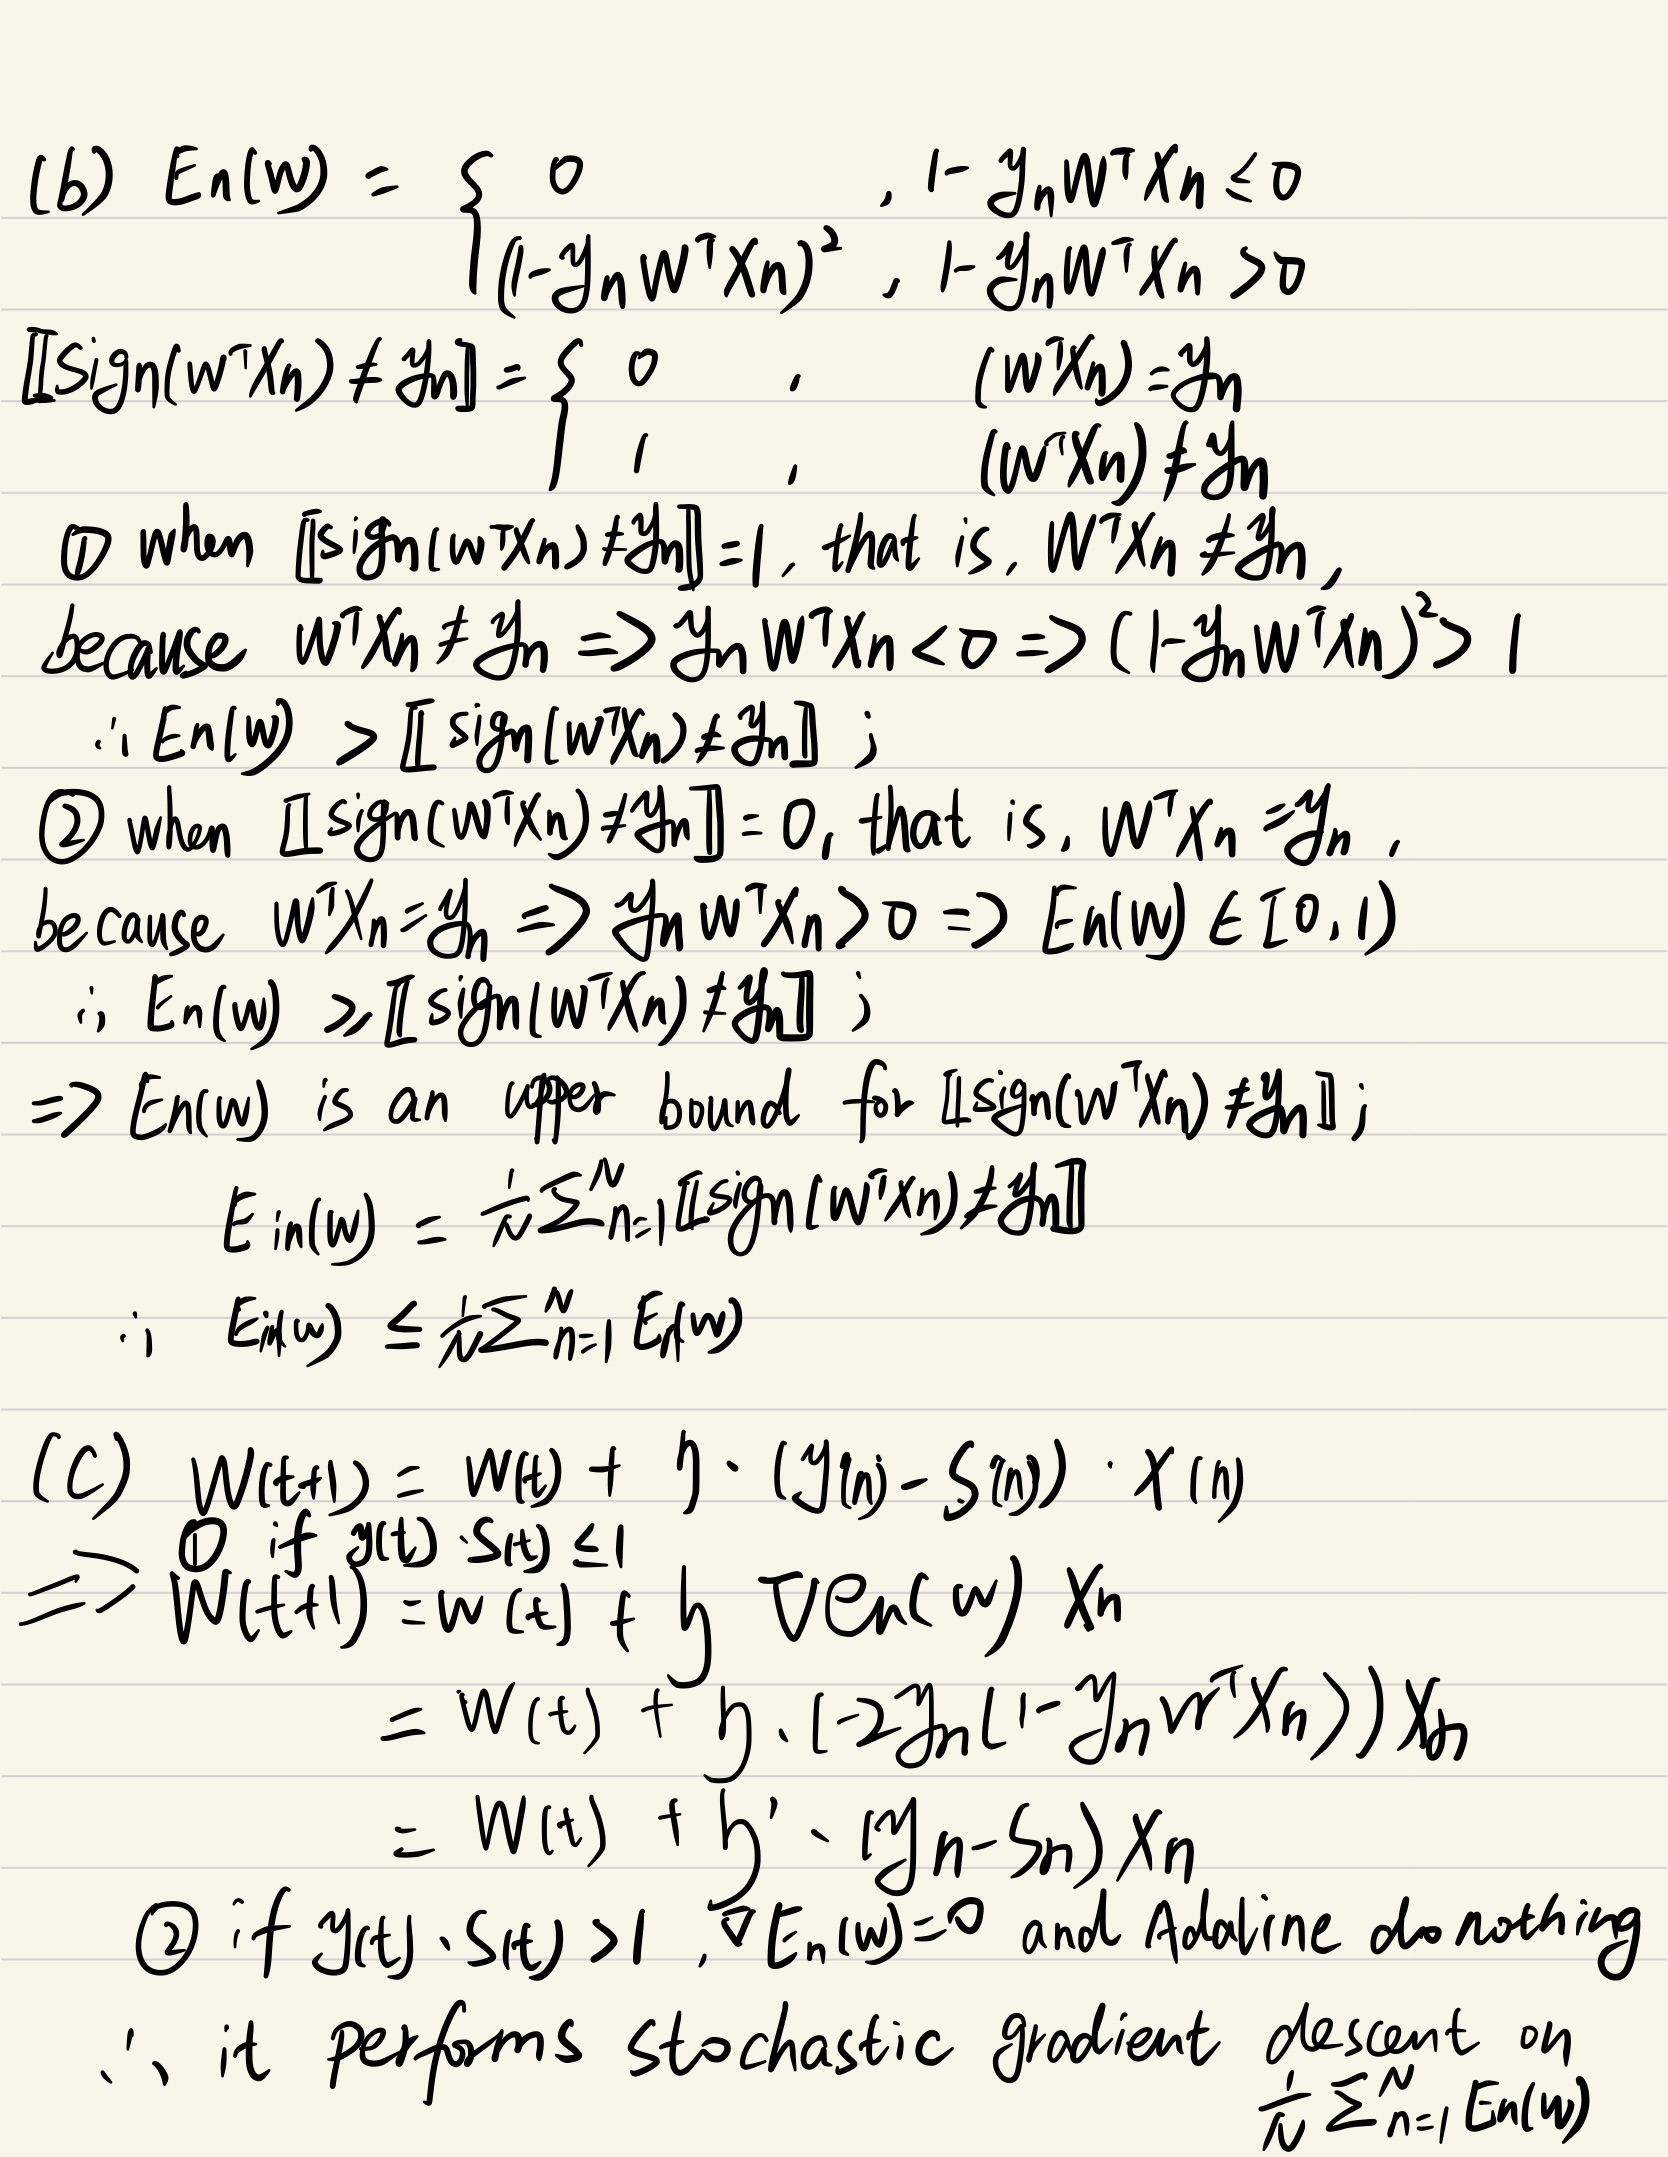 (b) En(W) = { 0 , 1-ynWᵀXn ≤ 0
(1-ynWᵀXn)² , 1-ynWᵀXn >0
⟦Sign(WᵀXn) ≠ yn⟧ = { 0 , (WᵀXn) = yn
1 , (WᵀXn) ≠ yn
① when ⟦sign(WᵀXn) ≠ yn⟧ = 1, that is, WᵀXn ≠ yn,
because WᵀXn ≠ yn => ynWᵀXn < 0 => (1-ynWᵀXn)² > 1
∴ En(W) > ⟦sign(WᵀXn) ≠ yn⟧ ;
② when ⟦sign(WᵀXn) ≠ yn⟧ = 0, that is, WᵀXn = yn ,
because WᵀXn = yn => ynWᵀXn > 0 => En(W) ∈ [0,1)
∴ En(W) ≥ ⟦sign(WᵀXn) ≠ yn⟧ ;
=> En(W) is an upper bound for ⟦sign(WᵀXn) ≠ yn⟧ ;
Ein(W) = 1/N Σᴺn=1 ⟦sign(WᵀXn) ≠ yn⟧
∴ Ein(W) ≤ 1/N Σᴺn=1 En(W)
(C) W(t+1) = W(t) + η · (y(n) - S(n)) · X(n)
① if y(t) · S(t) ≤ 1
=> W(t+1) = W(t) + η ∇en(w) Xn
= W(t) + η · (-2yn(1-ynWᵀXn)) Xn
= W(t) + η' · (yn - Sn) Xn
② if y(t) · S(t) > 1 , ∇En(W) = 0 and Adaline do nothing
∴ it performs stochastic gradient descent on
1/N Σᴺn=1 En(W)